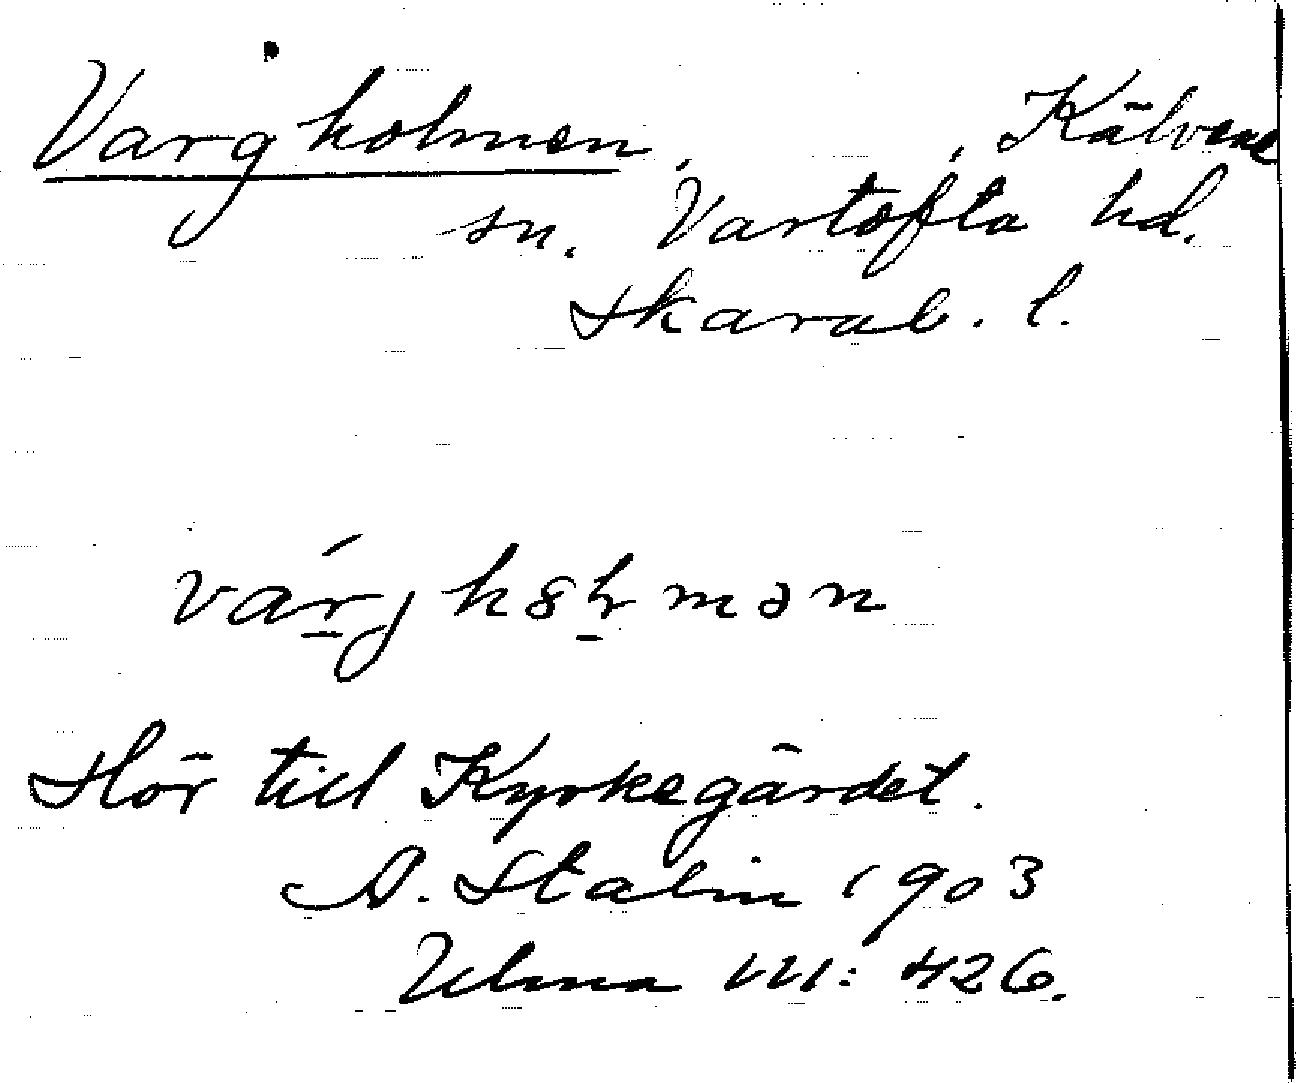 Vargholmen, , Kälvene
sn. Vartofta hd.
Skarab. l.
Hör till Kyrkegärdet.
A. Stalin 1903
Ulma 111: 426.